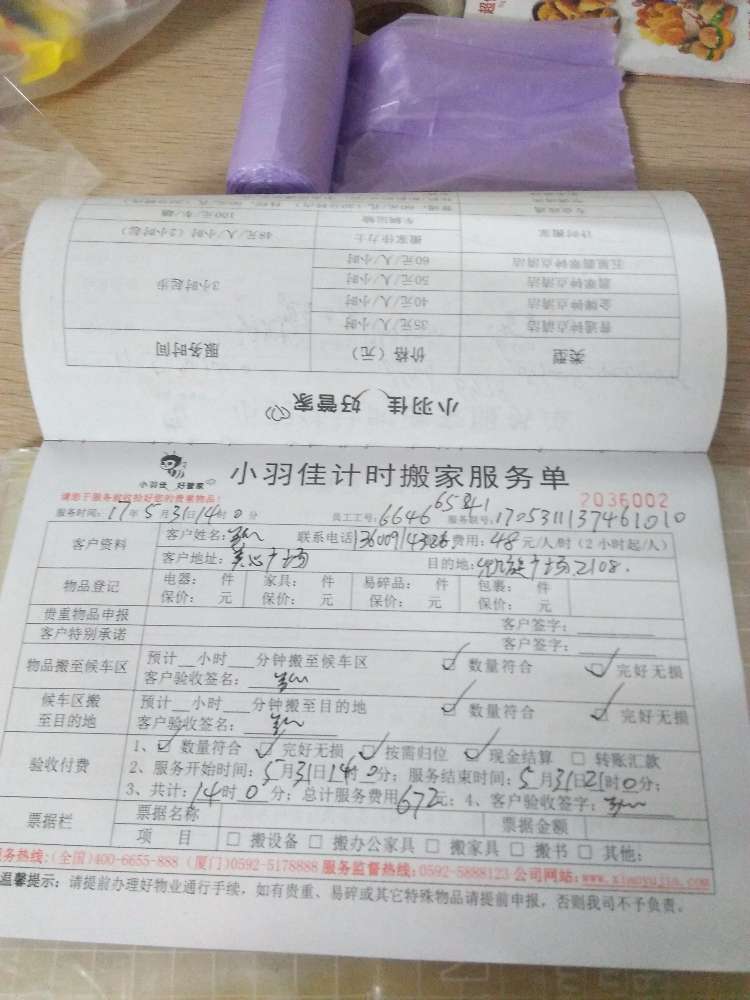 超
专业洗涤
普通：60元/孔（30分钟内）
计时搬家 车辆运输 100元/车/趟
搬家佳力士 48元/人/小时（2小时起）
五星翡翠钟点清洁 60元/人/小时 3小时起步
翡翠钟点清洁 50元/人/小时
金牌钟点清洁 40元/人/小时
普通钟点清洁 35元/人/小时
类型 价格（元） 服务时间
小羽佳 好管家
小羽佳 好管家
小羽佳计时搬家服务单
请您于服务前收拾好您的贵重物品！
2036002
服务时间：17年5月31日14时0分 员工工号：6646 65841 服务联号：1705311137461010
客户资料 客户姓名： 联系电话 费用：48元/人/时（2小时起/人）
客户地址： 目的地：
物品登记 电器： 件 家具： 件 易碎品： 件 包裹： 件
保价： 元 保价： 元 保价： 元 保价： 元
贵重物品申报 客户签字：
客户特别承诺 客户签字：
物品搬至候车区 预计__小时___分钟搬至候车区 ☑ 数量符合 ☑ 完好无损
客户验收签名：
候车区搬至目的地 预计__小时___分钟搬至目的地 ☑ 数量符合 ☑ 完好无损
客户验收签名：
验收付费 1、☑ 数量符合 ☑ 完好无损 ☑ 按需归位 ☑ 现金结算 □ 转账汇款
2、服务开始时间：5月31日14时0分；服务结束时间：5月31日21时0分；
3、共计：14时0分；总计服务费用672元；4、客户验收签字：
票据栏 票据名称 票据金额
项 目 □ 搬设备 □ 搬办公家具 □ 搬家具 □ 搬书 □ 其他：
服务热线：(全国)400-6655-888 (厦门)0592-5178888 服务监督热线：0592-5888123 公司网站：www.xiaoyujia.com
温馨提示：请提前办理好物业通行手续，如有贵重、易碎或其它特殊物品请提前申报，否则我司不予负责。